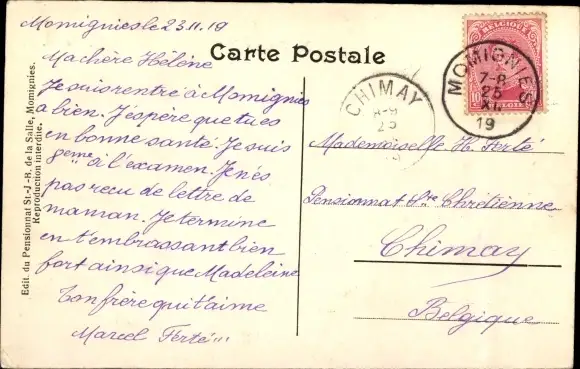 Momignies le 23.11.19
Ma chère Hélène
Je suis rentré à Momignies
a bien. J'éspère que tu es
en bonne santé. Je suis
9eme à l'examen. Je n'és
pas reçu de lettre de
maman. Je termine
en t'embrassant bien
fort ainsi que Madeleine
Ton frère qui t'aime
Marcel Ferté
Edit. du Pensionnat St.-J.-B. de la Salle, Momignies.
Reproduction interdite.
Carte Postale
BELGIQUE
10
MOMIGNIES
7-8
25
XI
19
CHIMAY
8-9
25
Mademoiselle H. Ferté
Pensionnat Ste Chrétienne
Chimay
Belgique